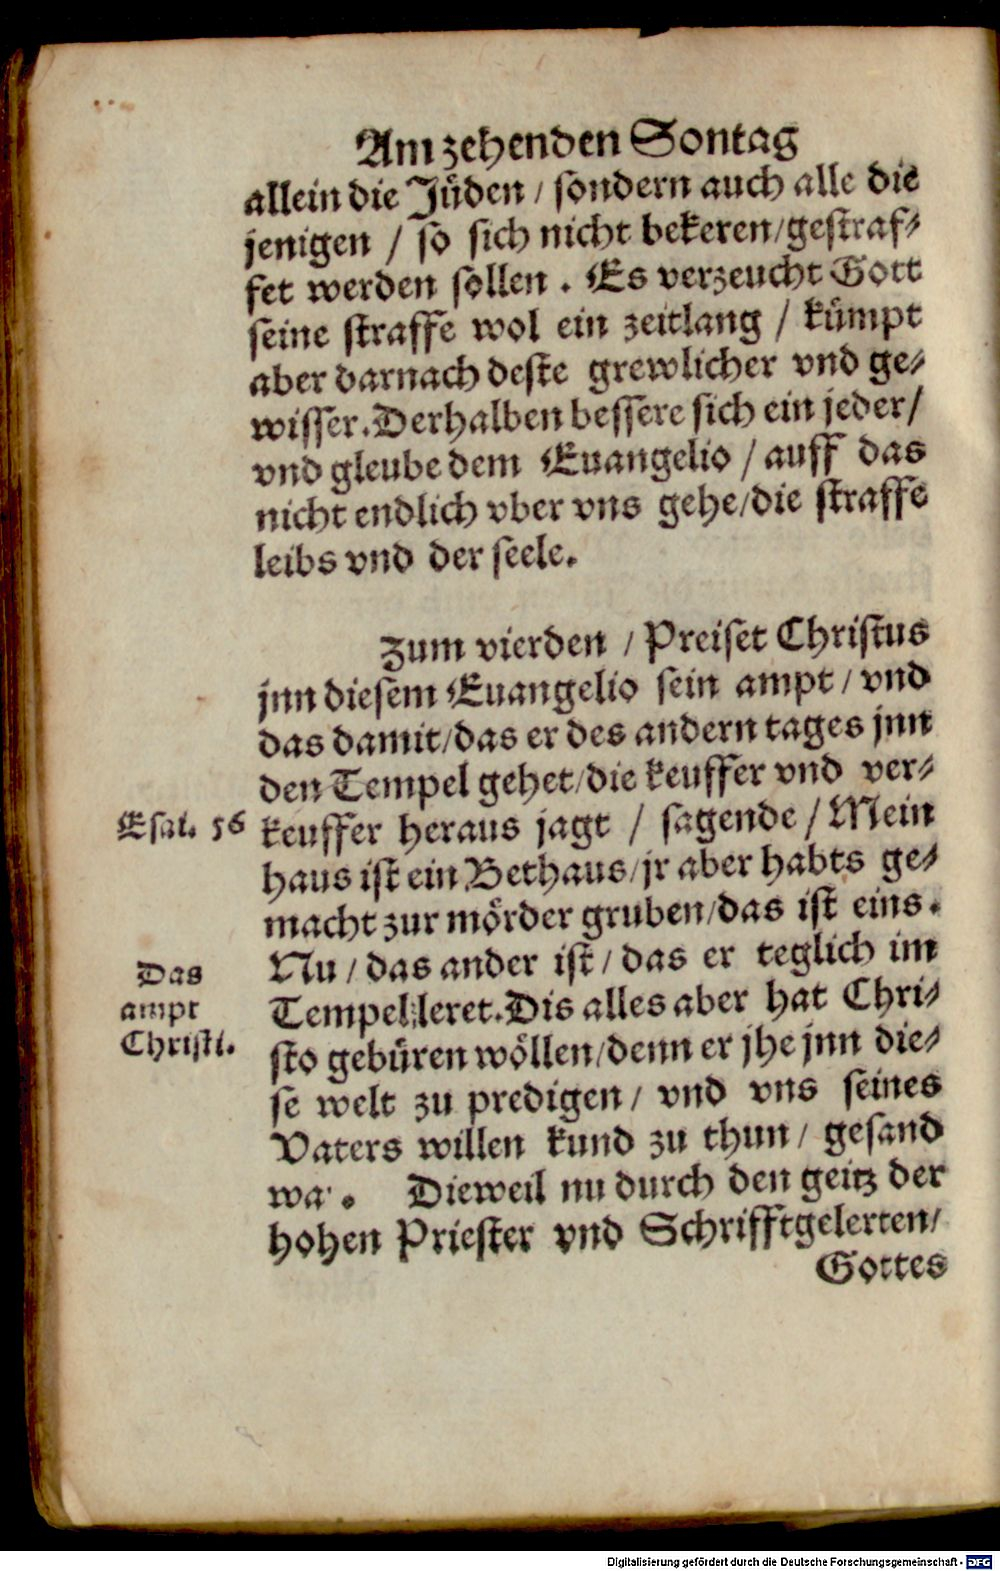 Am zehenden Sontag
allein die Jüden / sondern auch alle die
jenigen / so sich nicht bekeren / gestraf-
fet werden sollen. Es verzeucht Gott
seine straffe wol ein zeitlang / kümpt
aber darnach deste grewlicher vnd ge-
wisser. Derhalben bessere sich ein jeder /
vnd gleube dem Euangelio / auff das
nicht endlich vber vns gehe / die straffe
leibs vnd der seele.
Zum vierden / Preiset Christus
jnn diesem Euangelio sein ampt / vnd
das damit / das er des andern tages jnn
den Tempel gehet / die keuffer vnd ver-
Esai. 56
keuffer heraus jagt / sagende / Mein
haus ist ein Bethaus / jr aber habts ge-
macht zur mörder gruben / das ist eins.
Das
ampt
Christi.
Nu / das ander ist / das er teglich im
Tempel leret. Dis alles aber hat Chri-
sto gebüren wöllen / denn er jhe jnn die-
se welt zu predigen / vnd vns seines
Vaters willen kund zu thun / gesand
wa. Dieweil nu durch den geitz der
hohen Priester vnd Schrifftgelerten /
Gottes
Digitalisierung gefördert durch die Deutsche Forschungsgemeinschaft - DFG